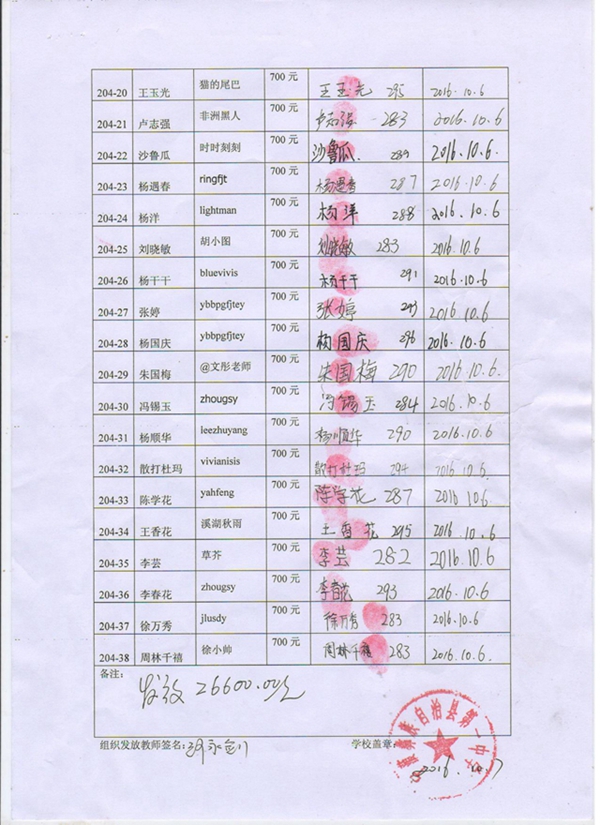 204-20 王玉光 猫的尾巴 700 元 王玉光 295 2016.10.6
204-21 卢志强 非洲黑人 700 元 卢志强 283 2016.10.6
204-22 沙鲁瓜 时时刻刻 700 元 沙鲁瓜 289 2016.10.6
204-23 杨遇春 ringfjt 700 元 杨遇春 287 2016.10.6
204-24 杨洋 lightman 700 元 杨洋 288 2016.10.6
204-25 刘晓敏 胡小图 700 元 刘晓敏 283 2016.10.6
204-26 杨干干 bluevivis 700 元 杨干干 291 2016.10.6
204-27 张婷 ybbpgfjtey 700 元 张婷 2016.10.6
204-28 杨国庆 ybbpgfjtey 700 元 杨国庆 296 2016.10.6
204-29 朱国梅 @文彤老师 700 元 朱国梅 290 2016.10.6
204-30 冯锡玉 zhougsy 700 元 冯锡玉 284 2016.10.6
204-31 杨顺华 leezhuyang 700 元 杨顺华 290 2016.10.6
204-32 散打杜玛 vivianisis 700 元 散打杜玛 294 2016.10.6
204-33 陈学花 yahfeng 700 元 陈学花 287 2016 10.6
204-34 王香花 溪湖秋雨 700 元 王香花 295 2016.10.6
204-35 李芸 草芥 700 元 李芸 282 2016.10.6
204-36 李春花 zhougsy 700 元 李春花 293 2016.10.6
204-37 徐万秀 jlusdy 700 元 徐万秀 283 2016.10.6
204-38 周林千禧 徐小帅 700 元 周林千禧 283 2016.10.6
备注：
发放 26600.00元
组织发放教师签名： 学校盖章：
族自治县第一中学
2016.10.7